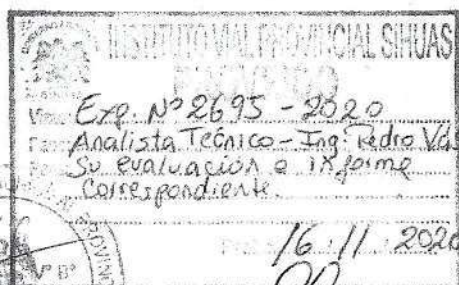 INSTITUTO VIAL PROVINCIAL SIHUAS
PROVEIDO
Exp. N° 2695 - 2020
Analista Técnico - Ing. Pedro Vás
Su evaluación e informe
Correspondiente.
16 / 11 2020
V° B°